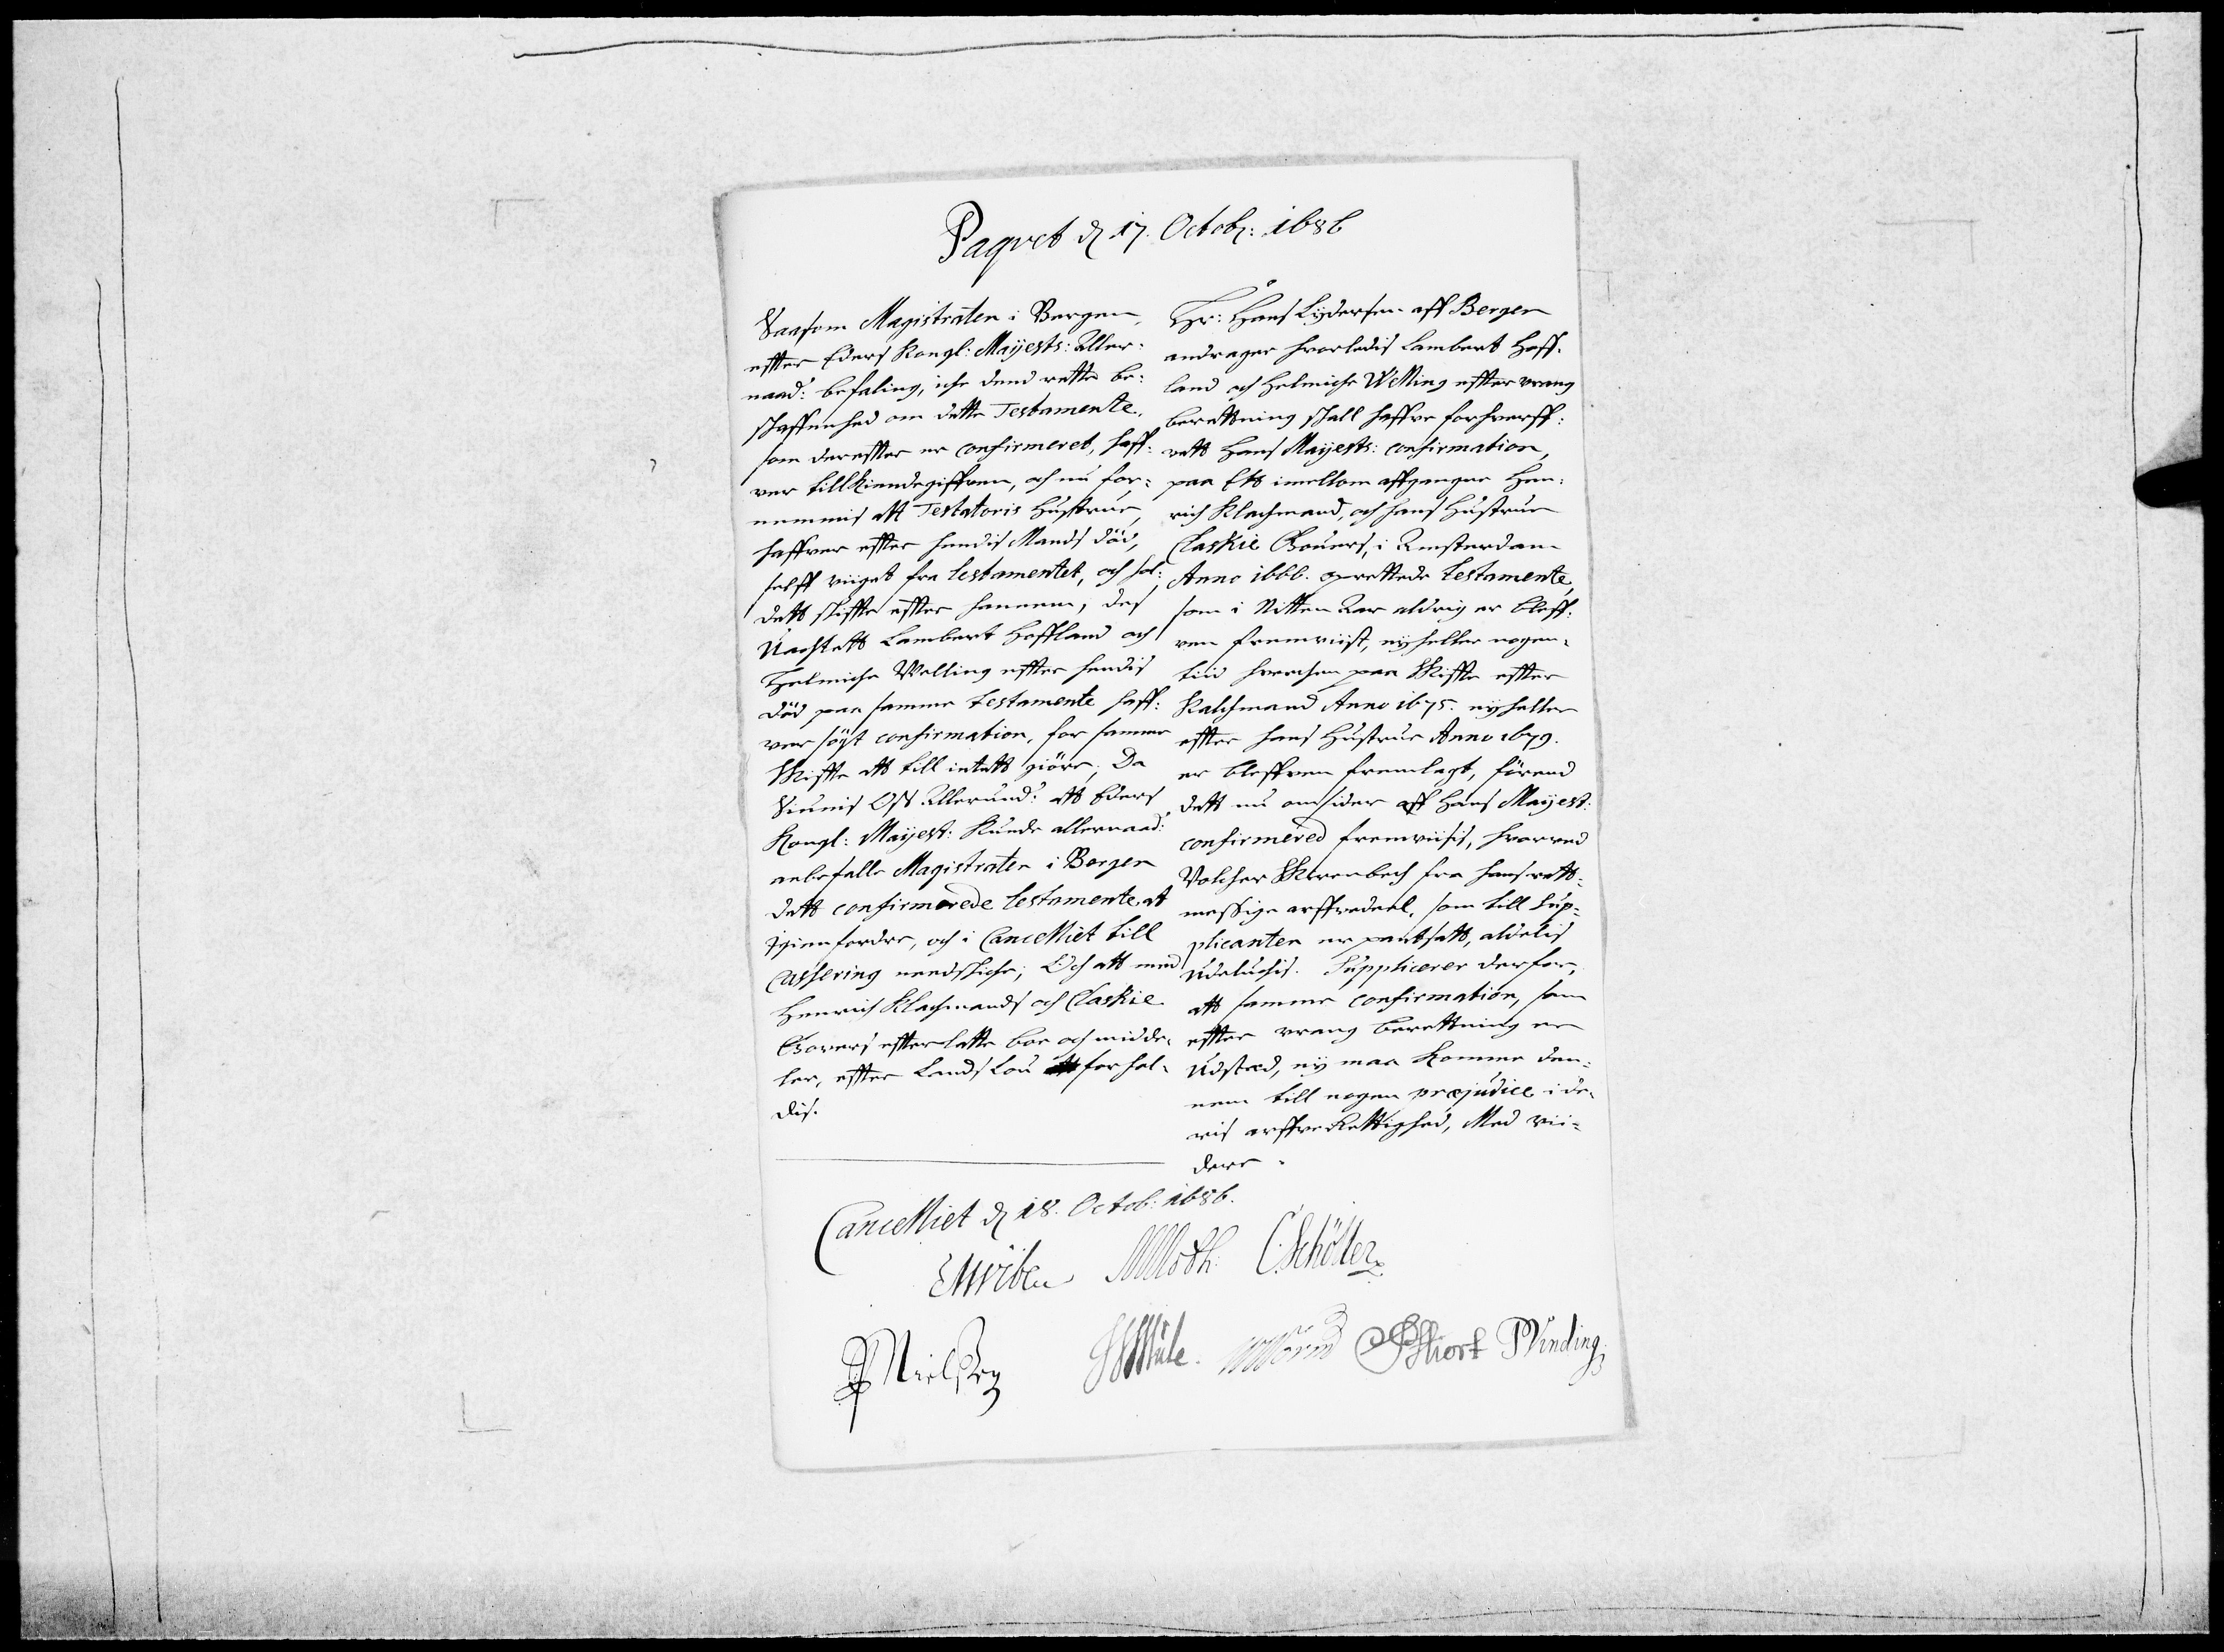 Paqvet d 17. Octobr: 1686
Saasom Magistraten i Bergen,
effter Eders Kongl: Mayests: Aller-
naad: befaling, iche dend rette be-
skaffenhed om dette Testamente,
som dereffter er confirmeret, haff-
ver tillkiendegiffven, och nu for-
nemmis att Testatoris Hustrue,
haffver effter hendis Mands död,
selff viiget fra testamentet, och hol-
dett skiffte effter hannem, des
Uachtett Lambert Hoffland och
Helmiche Welling effter hendis
död paa samme testamente haff-
ver søgt confirmation, for samme
Skiffte att till intett giöre; Da
Siunis Oss Allerund: att Eders
Kongl: Mayest: Kunde allernaad:
anbefalle Magistraten i Bergen
dett confirmerede testamente, at
igienfordre, och i Cancelliet till
Cassering nedskiche; Och att med
Henrich Klachmands och Claskie
Govers effterlatte boe och midde-
ler, effter Lands Lou forhol-
dis.
Hr: Hans Lydersen aff Bergen
andrager hvorledis Lambert Hoff-
land och Helmiche Welling effter vrang
berettning skall haffve forhverff-
vett Hans Mayests: confirmation,
paa Ett imellem affgangne Hen-
rich Klachmand, och hans Hustrue
Claskie Govers, i Amsterdam
Anno 1666. oprettede testamente,
som i Nitten Aar aldrig er bleff-
ven fremviist, ey heller nogen-
tiid hverchen paa Skiffte effter
Kalchmand Anno 1675. ey heller
effter hans Hustrue Anno 1679.
er bleffven fremlagt, förend
dett nu omsider aff Hans Mayest:
confirmered fremviisis, hvorved
Volcher Skrenbech fra hans rett-
messige arffvedeel, som till Sup-
plicanten er pantsatt, aldelis
Udeluchis. Supplicerer derfor,
att samme confirmation, som
effter vrang berettning er
Udsted, ey maa komme den-
nem till nogen præjudice i de-
ris arffve Rettighed, Med vii-
dere.
Cancelliet d 18. Octob: 1686.
MWiben MMoth. CSchöller
PNielsen Worm PVinding